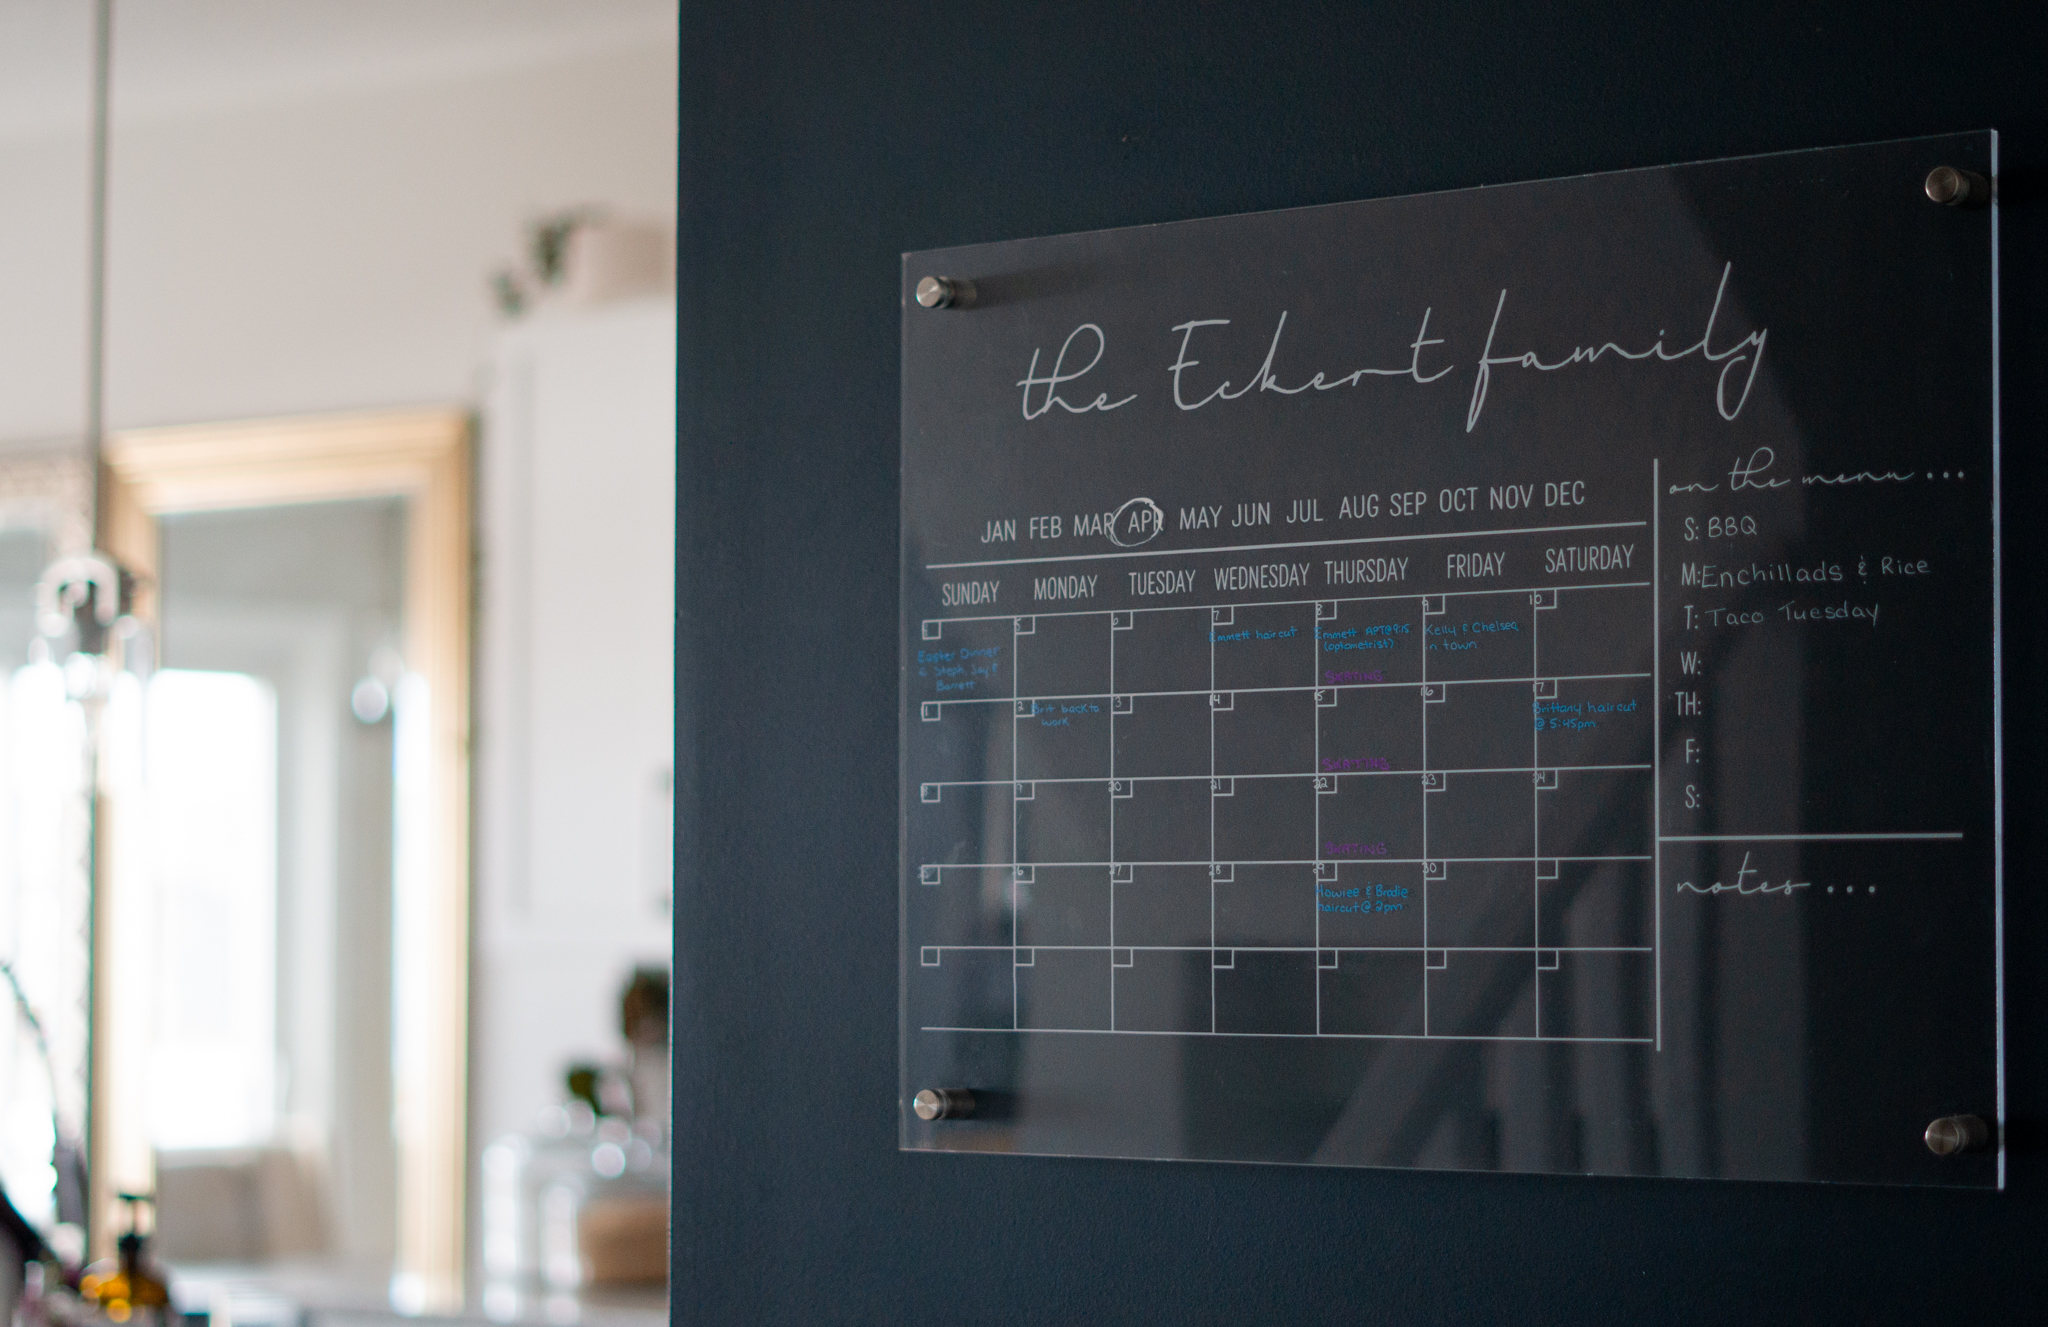 the Eckert family
JAN FEB MAR APR MAY JUN JUL AUG SEP OCT NOV DEC
SUNDAY MONDAY TUESDAY WEDNESDAY THURSDAY FRIDAY SATURDAY
4 5 6 7 8 9 10
Easter Dinner
Steph, Jay &
Barrett
Emmett haircut
Emmett APT@9:15
(optometrist)
SKATING
Kelly & Chelsea
in town
11 12 13 14 15 16 17
Brit back to
work
SKATING
Brittany haircut
@ 5:45pm
20 21 22 23 24
SKATING
25 26 27 28 29 30
& Brodie
haircut @ 2pm
on the menu...
S: BBQ
M: Enchillads & Rice
T: Taco Tuesday
W:
TH:
F:
S:
notes...